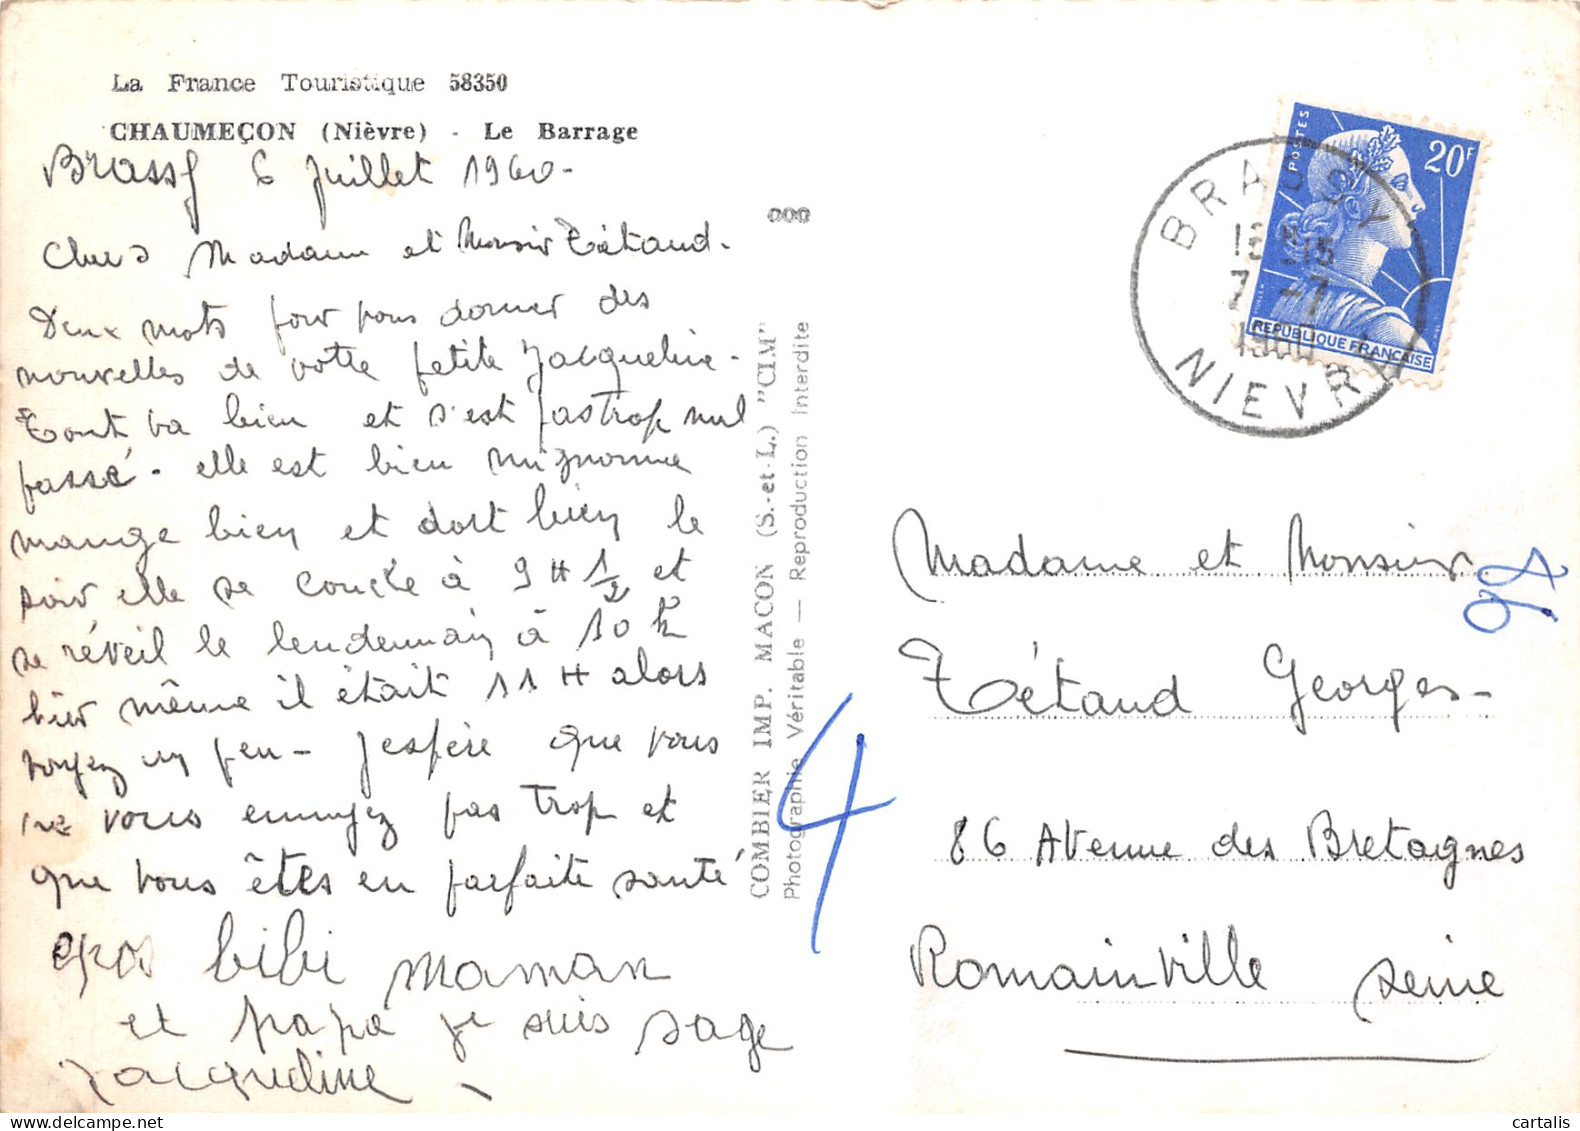 La France Touristique 58350
CHAUMEÇON (Nièvre) - Le Barrage
Brassy 6 Juillet 1960-
Chers Madame et Monsieur Tétaud-
Deux mots pour vous donner des
nouvelles de votre petite Jacqueline-
Tout va bien et s'est pas trop mal
passé- elle est bien mignonne
mange bien et dort bien le
soir elle se couche à 9 H 1/2 et
se réveil le lendemain à 10 h
hier même il était 11 H alors
voyez un peu- J'espère que vous
ne vous ennuyez pas trop et
que vous êtes en parfaite santé
gros bibi maman
et papa je suis sage
Jacqueline
000
COMBIER IMP. MACON (S.-et-L.) "CIM"
Photographie Véritable — Reproduction Interdite
4
POSTES
20F
REPUBLIQUE FRANÇAISE
BRASSY
7 -7
1960
NIEVRE
Madame et Monsieur
Tétaud Georges-
86 Avenue des Bretagnes
Romainville Seine
cartalis